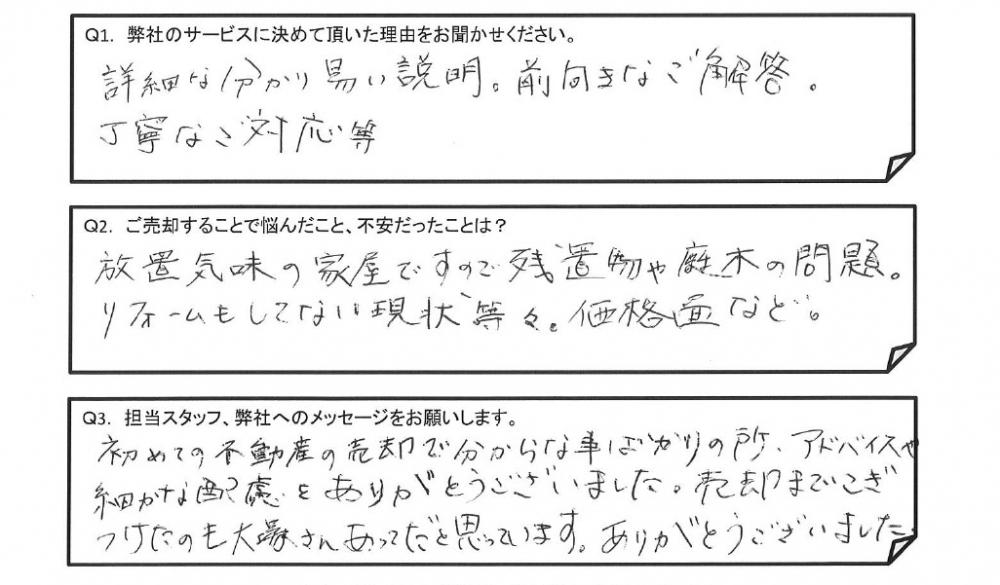 Q1. 弊社のサービスに決めて頂いた理由をお聞かせください。
詳細な分かり易い説明。前向きなご解答。
丁寧なご対応等
Q2. ご売却することで悩んだこと、不安だったことは？
放置気味の家屋ですので残置物や庭木の問題。
リフォームもしてない現状等々。価格面など。
Q3. 担当スタッフ、弊社へのメッセージをお願いします。
初めての不動産の売却で分からな事ばかりの所、アドバイスや
細かな配慮をありがとうございました。売却までこぎ
つけたのも大 さんあってだと思っています。ありがとうございました。